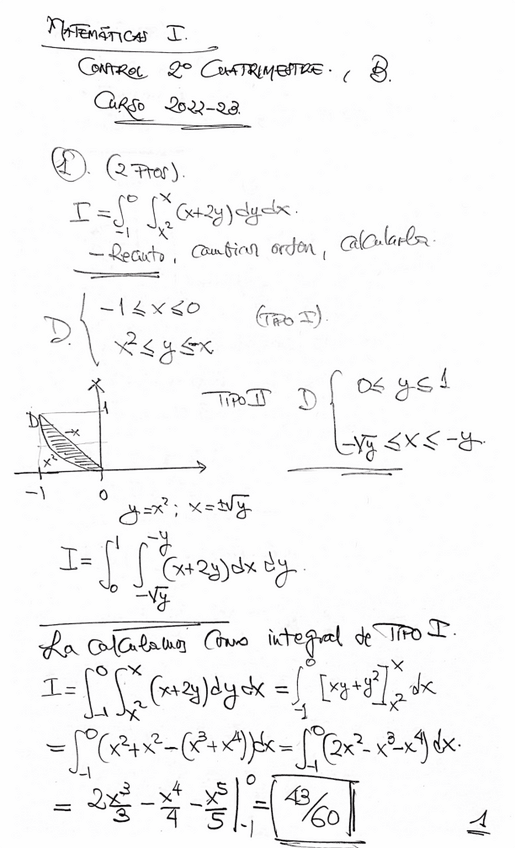 MATEMÁTICAS I.
CONTROL 2º CUATRIMESTRE., B.
CURSO 2022-23.
①. (2 Ptos).
I = ∫_{-1}^{0} ∫_{x²}^{x} (x+2y) dy dx.
- Recinto, cambiar orden, calcularla.
D. { -1 ≤ x ≤ 0 (TIPO I).
x² ≤ y ≤ -x
TIPO II D { 0 ≤ y ≤ 1
-√y ≤ x ≤ -y.
1
D -x
x²
-1 0
y = x² ; x = ±√y
I = ∫_{0}^{1} ∫_{-√y}^{-y} (x+2y) dx dy.
La calculamos como integral de TIPO I.
I = ∫_{-1}^{0} ∫_{x²}^{x} (x+2y) dy dx = ∫_{-1}^{0} [xy + y²]_{x²}^{x} dx
= ∫_{-1}^{0} (x² + x² - (x³ + x⁴)) dx = ∫_{-1}^{0} (2x² - x³ - x⁴) dx.
= 2x³/3 - x⁴/4 - x⁵/5 |_{-1}^{0} = 43/60
1